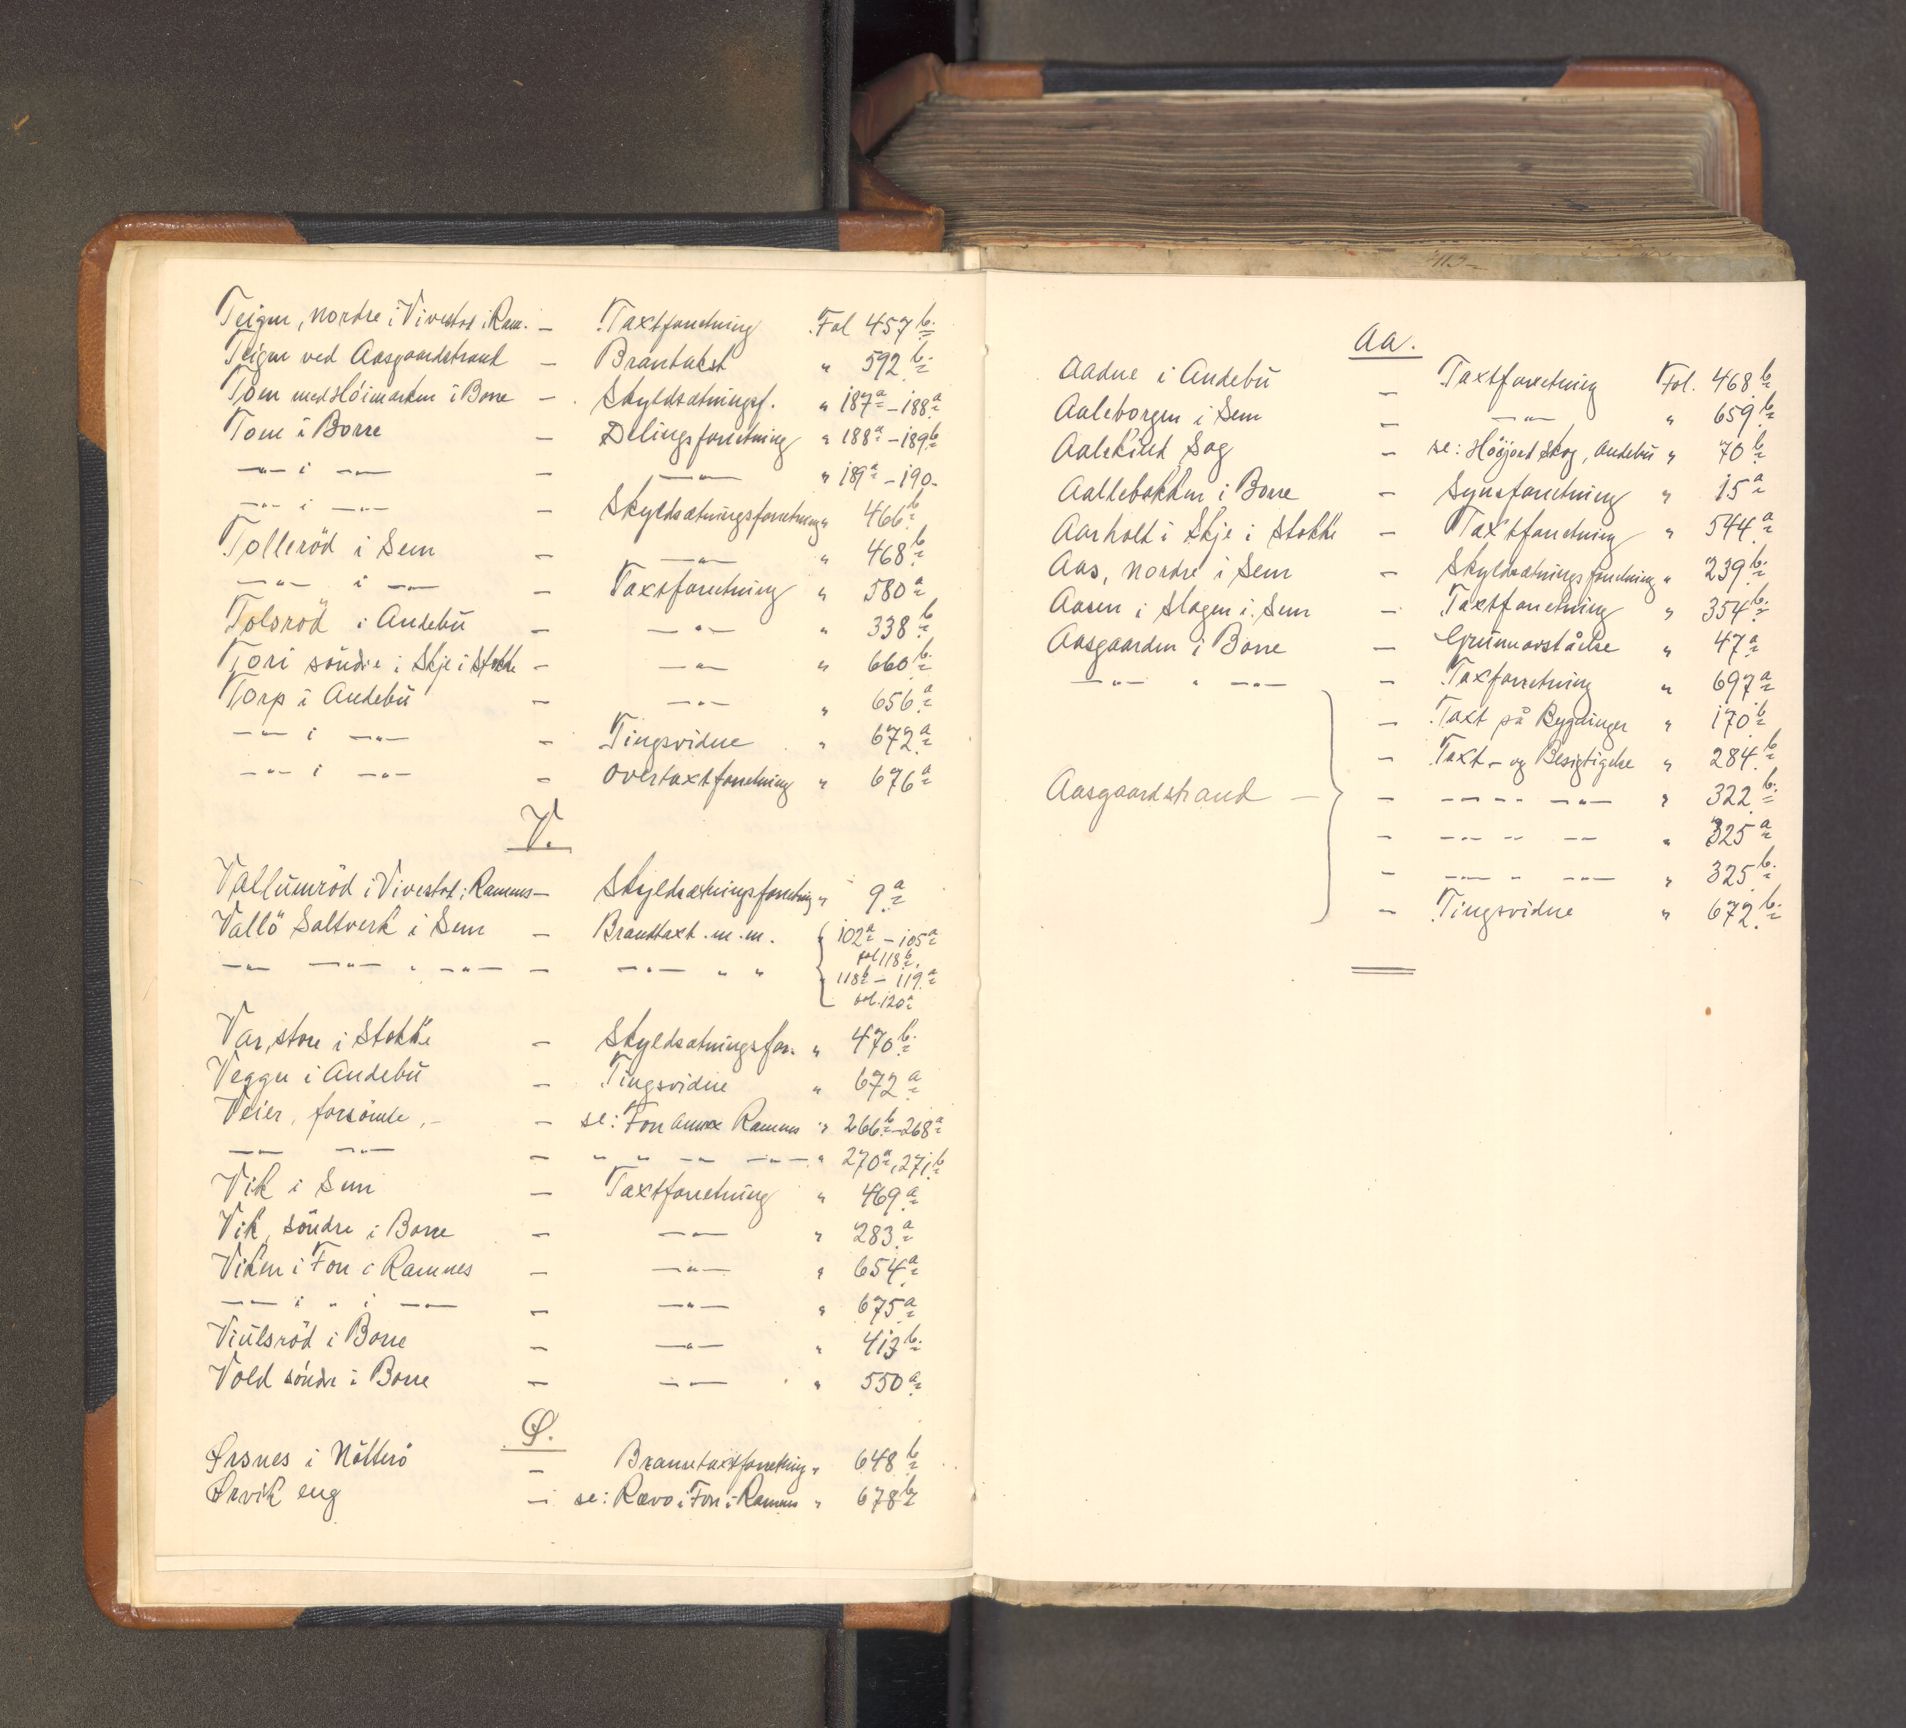 Teigen, nordre i Vivestad i Ram. — Taxtforretning Fol 457 b.
Teigen ved Aasgaardstrand — Branntakst " 592 b.
Tom med Höimarken i Borre — Skyldsætningsf. " 187 a – 188 a
Tom i Borre — Delingsforretning " 188 a – 189 b
—"— i —"— — —"— " 189 a – 190.
—"— i —"— — Skyldsætningsforretning " 466 b
Tolleröd i Sem — —"— " 468 b
—"— i —"— — Taxtforretning " 580 a
Tolsröd i Andebu — —"— " 338 b
Tori söndre i Skje i Stokke — —"— " 660 b.
Torp i Andebu — —"— " 656 a
—"— i —"— — Tingsvidne " 672 a
—"— i —"— — Overtaxtforretning " 676 a
V.
Vallumröd i Vivestad i Ramnes — Skyldsætningsforretning " 9 a
Vallö Saltverk i Sem — Brandtaxt m.m. { 102 a – 105 a
fol 118 b.
—"— —"— " —"— — —"— " " 118 b – 119 a
fol. 120 a
Var, store i Stokke — Skyldsætningsfor. " 470 b.
Veggen i Andebu — Tingsvidne " 672 a
Veier, forsömte, — — se: Fon annex Ramnes " 266 b – 268 a
—"— —"— — " " —"— —"— " 270 a, 271 b
Vik i Sem — Taxtforretning " 469 a
Vik, söndre i Borre — —"— " 283 a
Viken i Fon i Ramnes — —"— " 654 a
—"— i " i —"— — —"— " 675 a
Viulsröd i Borre — —"— " 413 b.
Vold söndre i Borre — —"— " 550 a
Ø.
Ørsnes i Nötterö — Branntaxtforretning " 648 b
Ørvik eng — se: Rævo i Fon i Ramnes " 678 b
113
Aa.
Aadne i Andebu — Taxtforretning Fol. 468 b
Aaleborgen i Sem — —"— " 659 b
Aaleskied, Sag — se: Höijord Skog, Andebu " 70 b
Aallebakken i Borre — Synsforretning " 15 a
Aarholt i Skje i Stokke — Taxtforretning " 544 a
Aas, nordre i Sem — Skyldsætningsforretning " 239 b.
Aasen i Slagen i Sem — Taxtforretning " 354 b.
Aasgaarden i Borre — Grunnavståelse " 47 a
—"— " —"— — Taxforretning " 697 a
— Taxt på Bygninger " 170 b
— Taxt- og Besigtigelse " 284 b
Aasgaardstrand — { — —"— " —"— " 322 b.
— —"— " —"— " 325 a
— —"— " —"— " 325 b.
— Tingsvidne " 672 b.